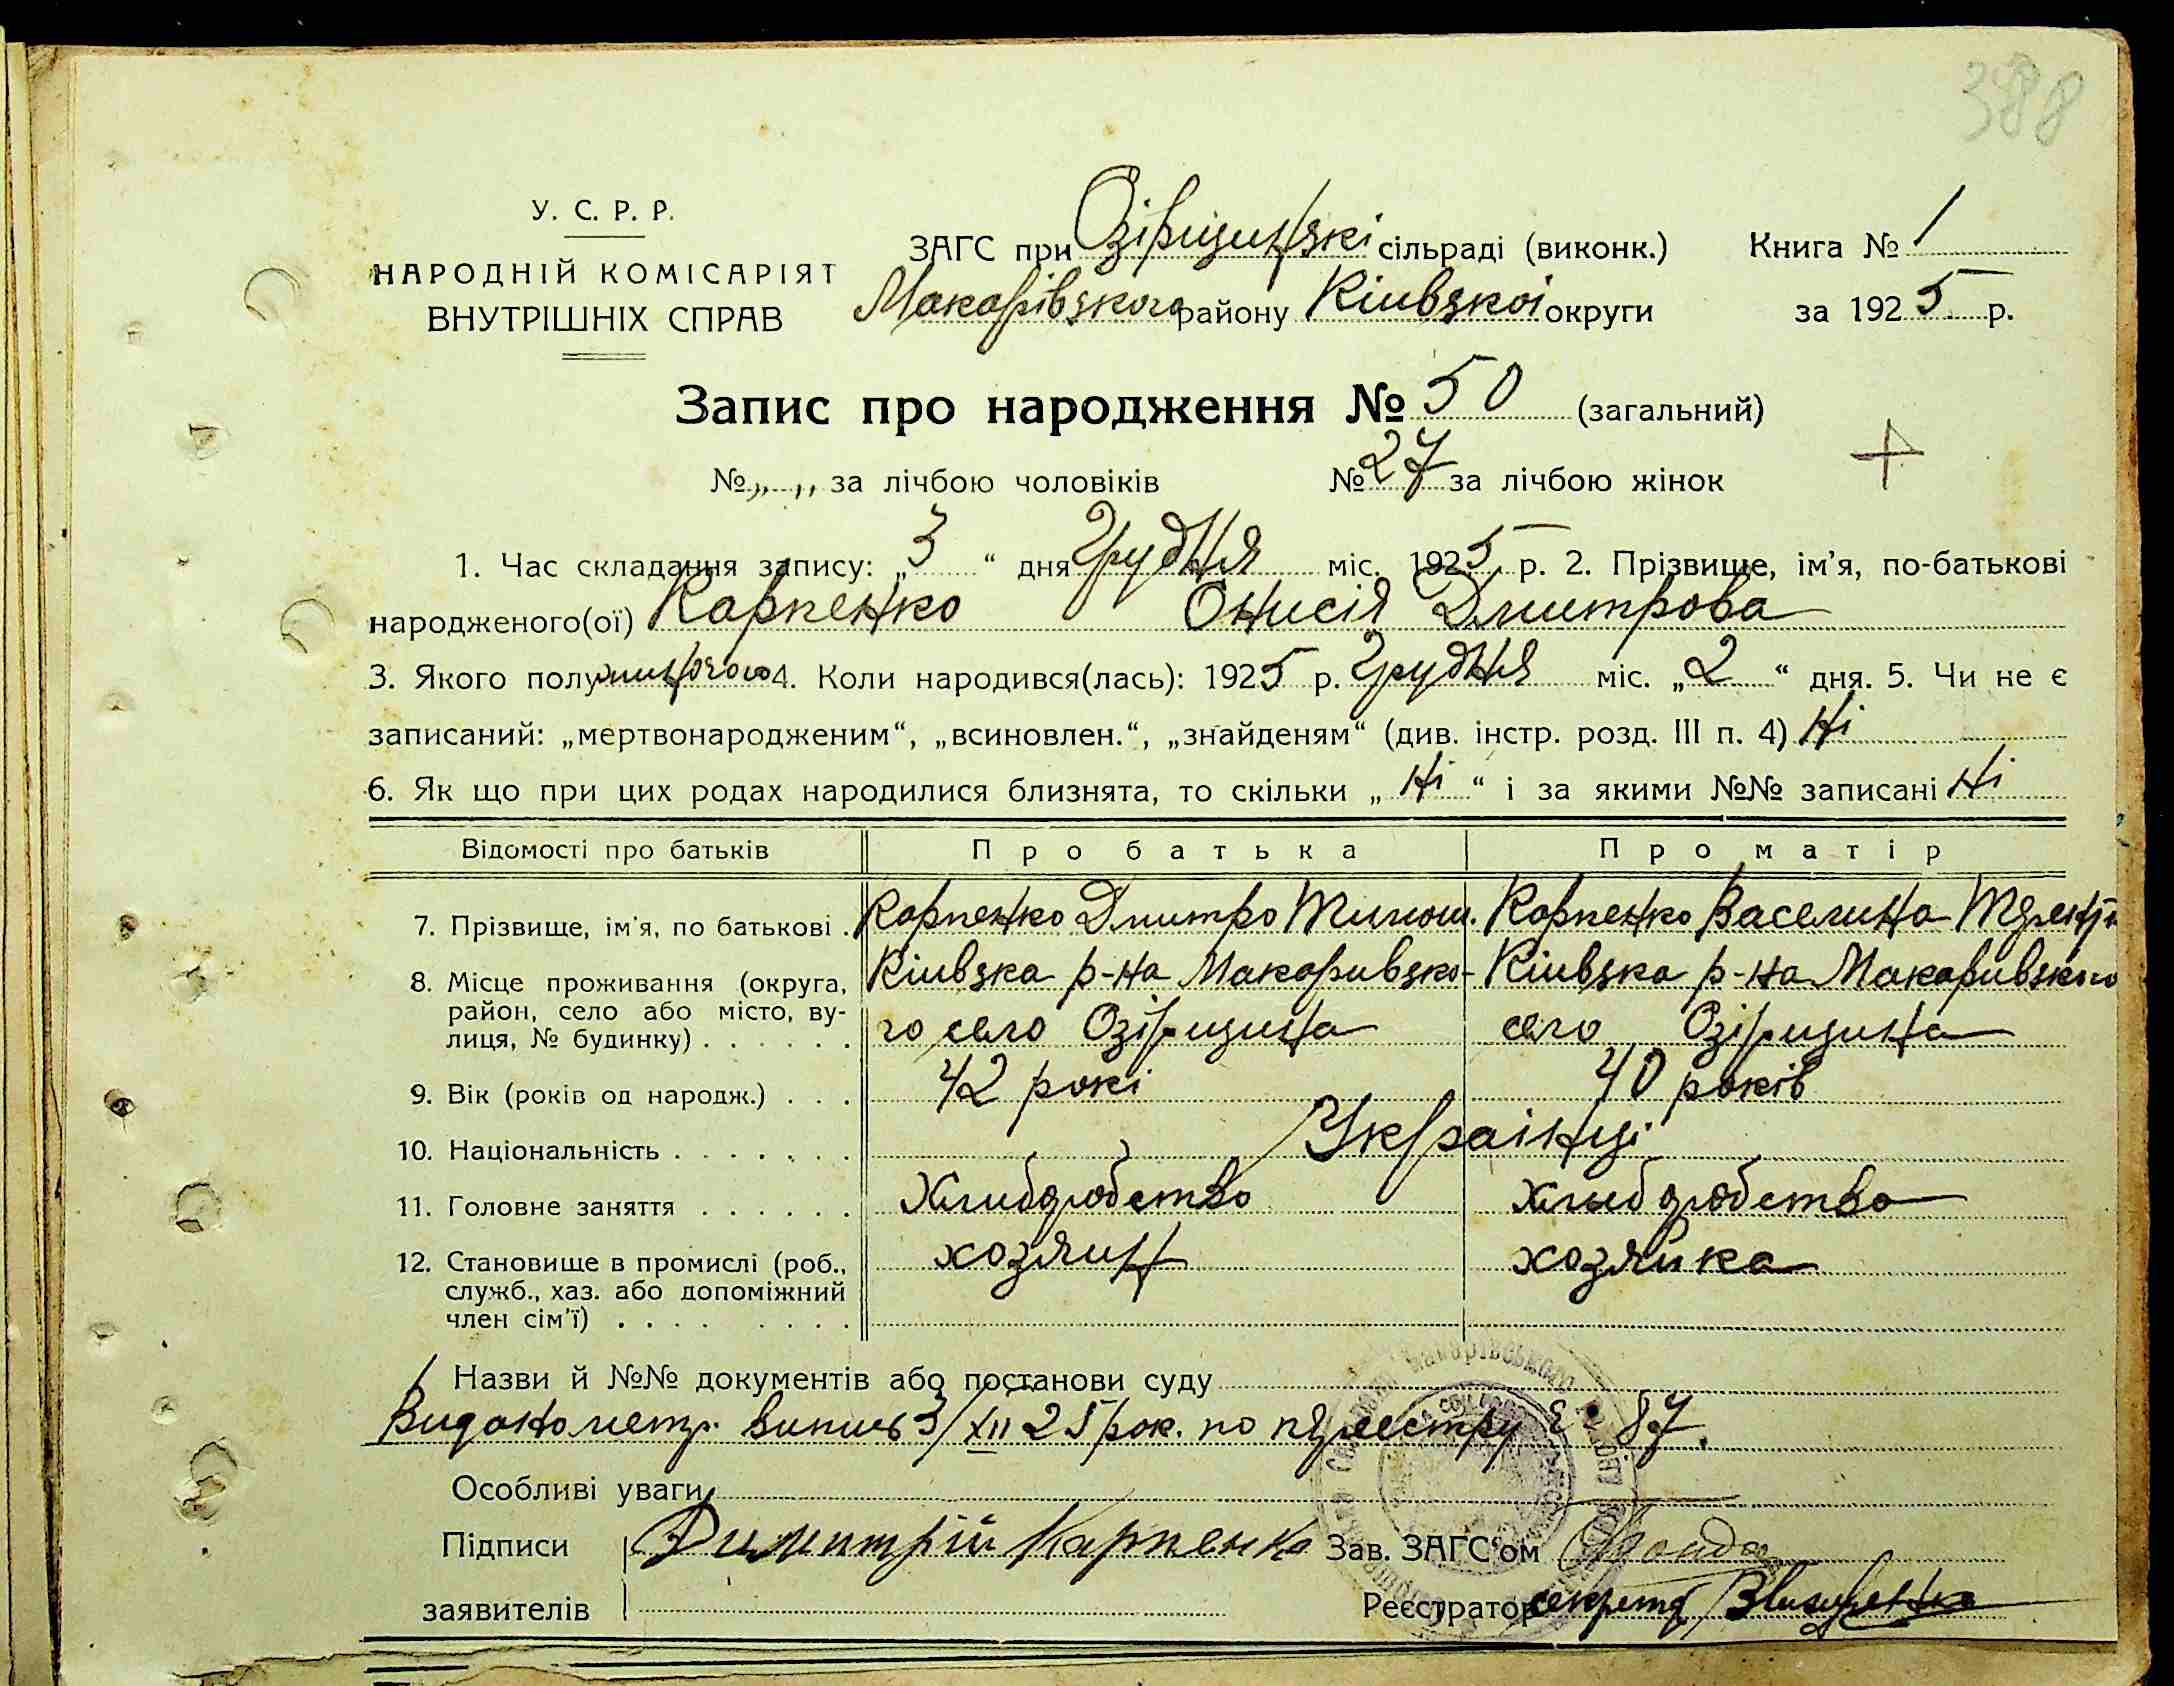 388
У. С. Р. Р.
НАРОДНІЙ КОМІСАРІЯТ
ВНУТРІШНІХ СПРАВ
ЗАГС при Озірщинскі сільраді (виконк.) Книга № 1
Макарівского району Кіивскоі округи за 1925 р.
Запис про народження № 50 (загальний)
№ „ „ за лічбою чоловіків № 27 за лічбою жінок
1. Час складання запису: „3“ дня Грудня міс. 1925 р. 2. Прізвище, ім'я, по-батькові
народженого(ої) Карпенко Онисія Дмитрова
3. Якого полу жиночого 4. Коли народився(лась): 1925 р. Грудня міс. „2“ дня. 5. Чи не є
записаний: „мертвонародженим“, „всиновлен.“, „знайденям“ (див. інстр. розд. III п. 4) Ні
6. Як що при цих родах народилися близнята, то скільки „Ні“ і за якими №№ записані Ні
Відомості про батьків Про батька Про матір
7. Прізвище, ім'я, по батькові . Карпенко Дмитро Тимош. Карпенко Васелина
8. Місце проживання (округа, Кіивска р-на Макаривско- Кіивска р-на Макаривского
район, село або місто, ву- го село Озірщина село Озірщина
лиця, № будинку) . . . . . .
9. Вік (років од народж.) . . . 42 рокі 40 років
10. Національність . . . . . . . Украінці
11. Головне заняття . . . . . . Хлиборобство Хлыборобство
12. Становище в промислі (роб., хозяин хозяйка
служб., хаз. або допоміжний
член сім'ї) . . . .
Назви й №№ документів або постанови суду
Видано метр. випись 3/XII 25 рок. по реестру 87.
Особливі уваги
Підписи Димитрій Карпенко Зав. ЗАГС'ом
заявителів Реєстратор секрет